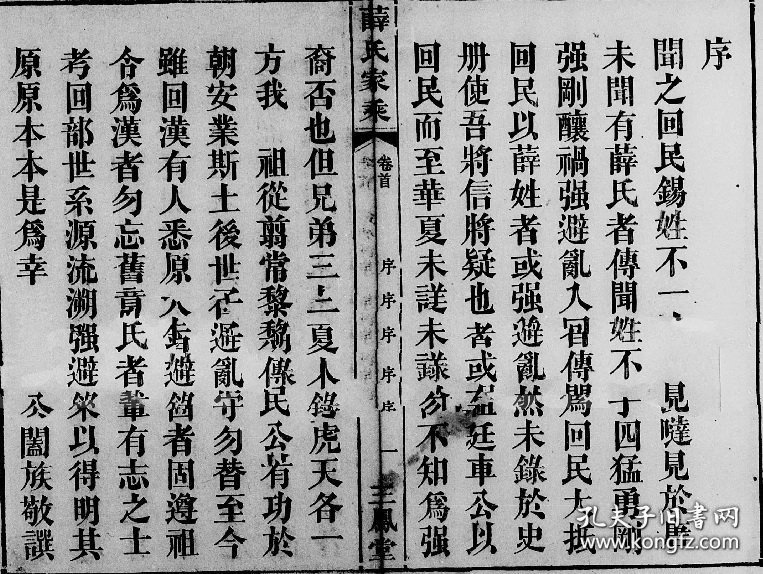 序
聞之回民錫姓不一 見 見於
未聞有薛氏者傳聞姓不 四猛勇剛
强剛釀禍强避亂入 傳 回民大
回民以薛姓者或强避亂然未錄於史
册使吾將信將疑也者或 廷車公以
回民而至華夏未詳未 不知為强
薛氏家乘 卷首 序 序 序 序 序 一 三鳳堂
裔否也但兄弟三 夏 虎天各一
方我 祖從 常黎 傳民公有功於
朝安業斯土後世 避亂守勿替至今
雖回漢有人悉原 避 者固遵祖
合為漢者勿忘舊 氏者 有志之士
考回部世系源流溯强避 以得明其
原原本本是為幸 公闔族敬譔
孔夫子旧书网
www.kongfz.com